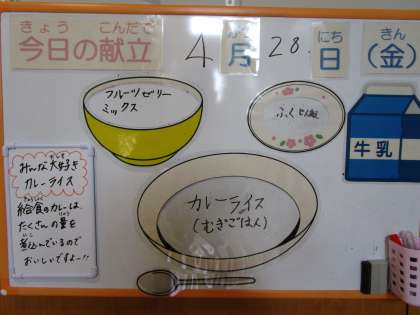 きょう こんだて
今日の献立
4 がつ 月 28. にち 日 きん (金)
フルーツゼリー
ミックス
ふくじん漬
牛乳
カレーライス
(むぎごはん)
みんな大好き
カレーライス
給食のカレーは、
たくさんの量を
煮込んでいるので
おいしいですよー!!